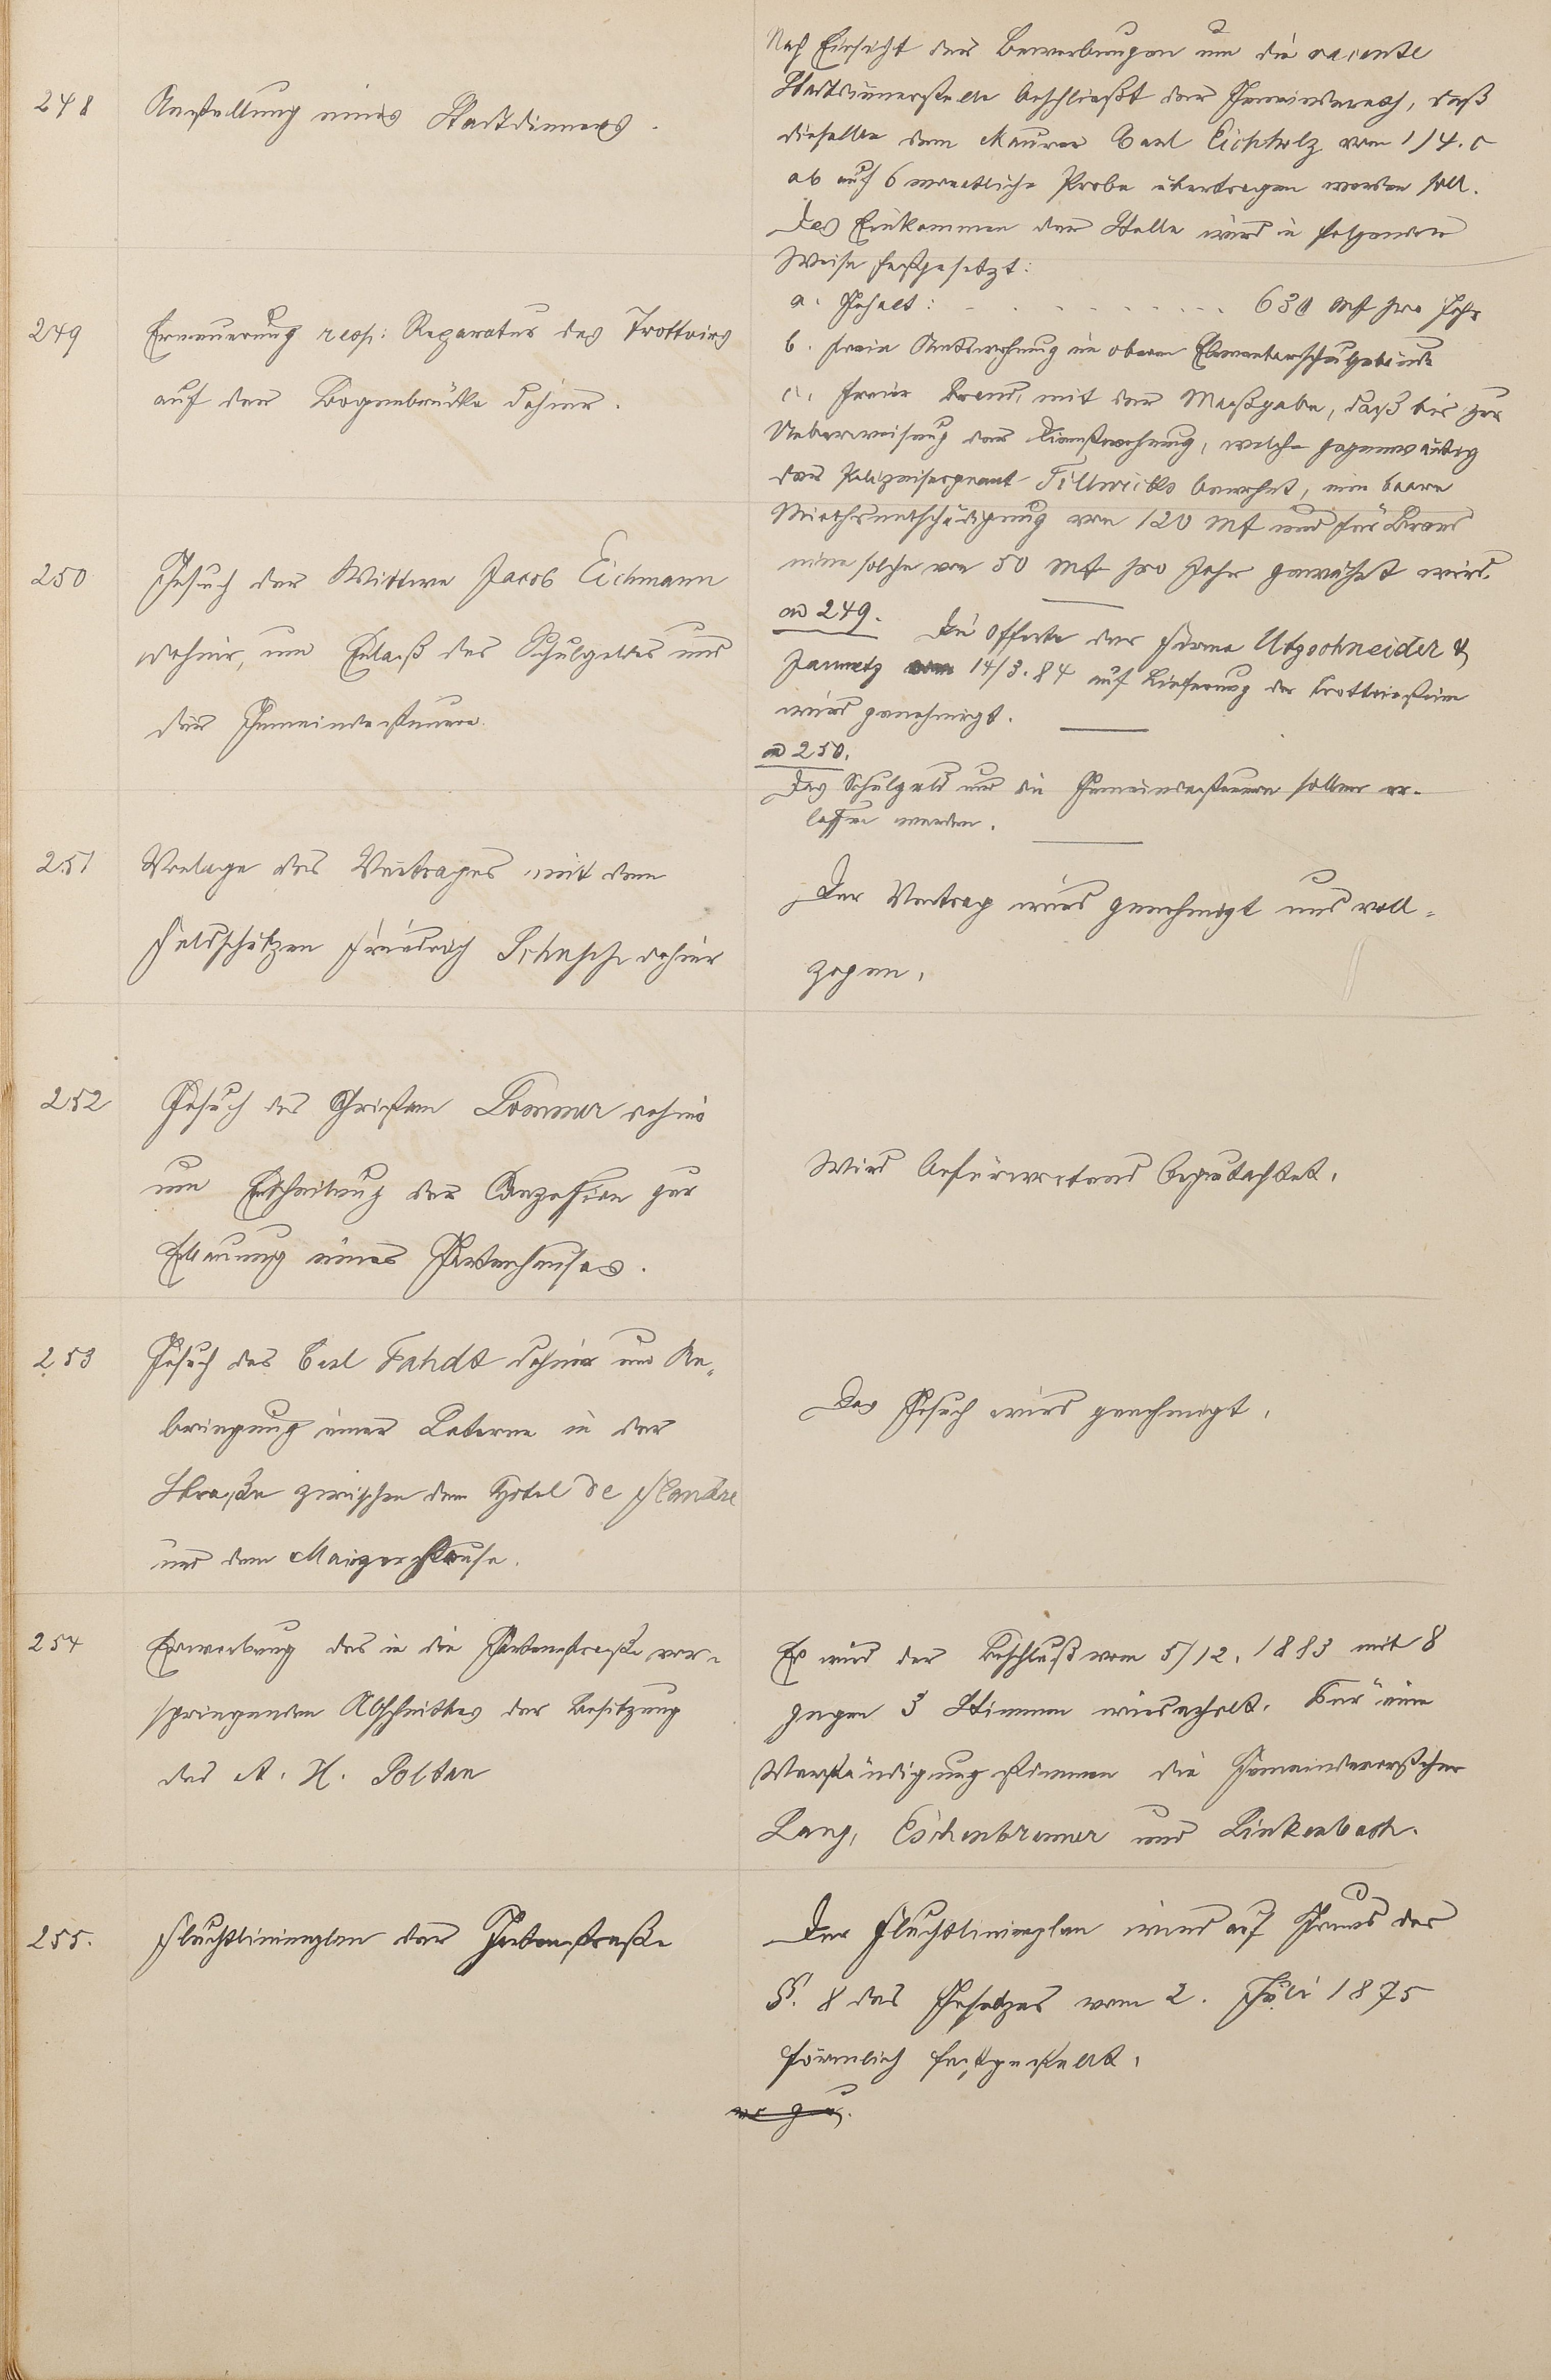 248
Anstellung eines Stadtdieners.
Nach Einsicht der Bewerbungen um die vacante
Stadtdienerstelle beschließt der Gemeinderath, daß
dieselbe dem Maurer Carl Eichholz vom 1/4. c
ab auf 6 monatliche Probe übertragen werden soll.
Das Einkommen der Stelle wird in folgender
Weise festgesetzt:
a. Gehalt: - . . . . . . . . . 630 Mk pro Jahr
b. freie Amtswohnung im oberen Elementarschulgebäude
c. freier Brand, mit der Maßgabe, daß bis zur
Ueberweisung der Dienstwohnung, welche gegenwärtig
der Polizeisergeant bewohnt, eine baare
Miethsentschädigung von 120 Mk und für Brand
eine solche von 50 Mk pro Jahr gewährt wird.
249
Erneuerung resp: Reparatur des Trottoirs
auf der Bogenbrücke dahier.
ad 249. Die Offerte der Firma Utzschneider &
Jaunez vom 14/3. 84 auf Lieferung der Trottoirsteine
wird genehmigt.
250
Gesuch der Wittwe Jacob Eichmann
dahier, um Erlaß des Schulgeldes und
der Gemeindesteuern.
ad 250.
Das Schulgeld und die Gemeindesteuern sollen er-
lassen werden.
251
Vorlage des Vertrages mit dem
Feldschützen Friedrich dahier
Der Vertrag wird genehmigt und voll-
zogen.
252
Gesuch des Christian Sommer dahier
um Ertheilung der Conzession zur
Erbauung eines Gartenhauses.
Wird befürwortend begutachtet.
253
Gesuch des Carl Fahdt dahier um An-
bringung einer Laterne in der
Straße zwischen dem Hotel de Flandre
und dem Mainzerhause.
Das Gesuch wird genehmigt.
254
Erwerbung des in die Gartenstraße vor-
springenden Abschnittes der Besitzung
des A. H. Soltan
Es wird der Beschluß vom 5/12. 1883 mit 8
gegen 3 Stimmen wiederholt. Für eine
Verständigung stimmen die Gemeindevorsteher
Lang, Eschenbrenner und Linkenbach.
255.
Fluchtlinienplan der Gartenstraße
Der Fluchtlinienplan wird auf Grund des
§. 8 des Gesetzes vom 2. Juli 1875
förmlich festgestellt.